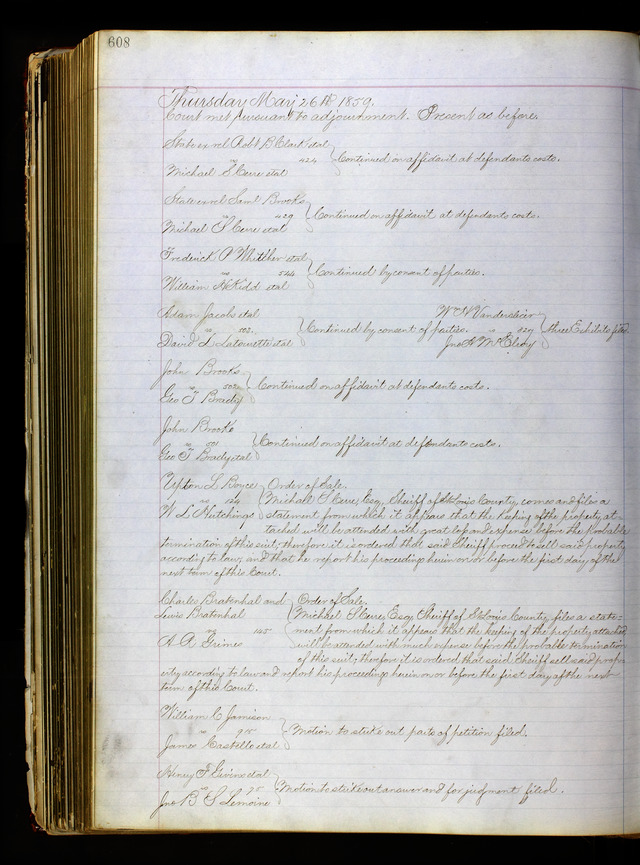 608
Thursday May 26th 1859.
Court met pursuant to adjournment. Present as before.
State ex rel Robt B Clark et al
vs 424 Continued on affidavit at defendants costs.
Michael S Cerre et al
State ex rel Saml Brooks
vs 429 Continued on affidavit at defendants costs.
Michael S Cerre et al
Frederick A Whittlher et al
vs 544 Continued by consent of parties.
William H Kidd et al
Adam Jacobs et al
vs 102. Continued by consent of parties.
David L Latourette et al
W N Vandersleer
vs 827 three Exhibits filed
Jno A McElroy
John Brooks
vs 502 Continued on affidavit at defendants costs.
Geo T Brady
John Brooks
vs 501 Continued on affidavit at defendants costs.
Geo T Brady et al
Upton L Boyce Order of Sale.
vs Michael S Cerre, Esq, Sheriff of St Louis County comes and files a
W L Hutchings statement from which it appears that the keeping of the property at-
tached will be attended with great loss and expense before the probable
termination of this suit; therefore it is ordered that said Sheriff proceed to sell said property
according to law, and that he report his proceeding herein on or before the first day of the
next term of this Court.
Charles Bratenhal and Order of Sale.
Lewis Bratenhal Michael S Cerre, Esq, Sheriff of St Louis County, files a state-
vs 145 ment from which it appears that the keeping of the property attached
A A Grimes will be attended with much expense before the probable termination
of this suit; therefore it is ordered that said Sheriff sell said prop-
erty according to law and report his proceedings herein on or before the first day of the next
term of this Court.
William C Jamison
vs 915 Motion to strike out parts of petition filed.
James Castello et al
Henry F Givins et al
vs 95 Motion to strike out answer and for judgment filed.
Jno B S Lemoine